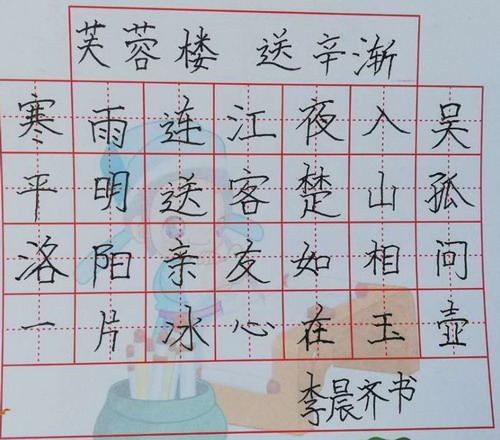 芙蓉楼 送辛渐
寒雨连江夜入吴
平明送客楚山孤
洛阳亲友如相问
一片冰心在玉壶
李晨齐书